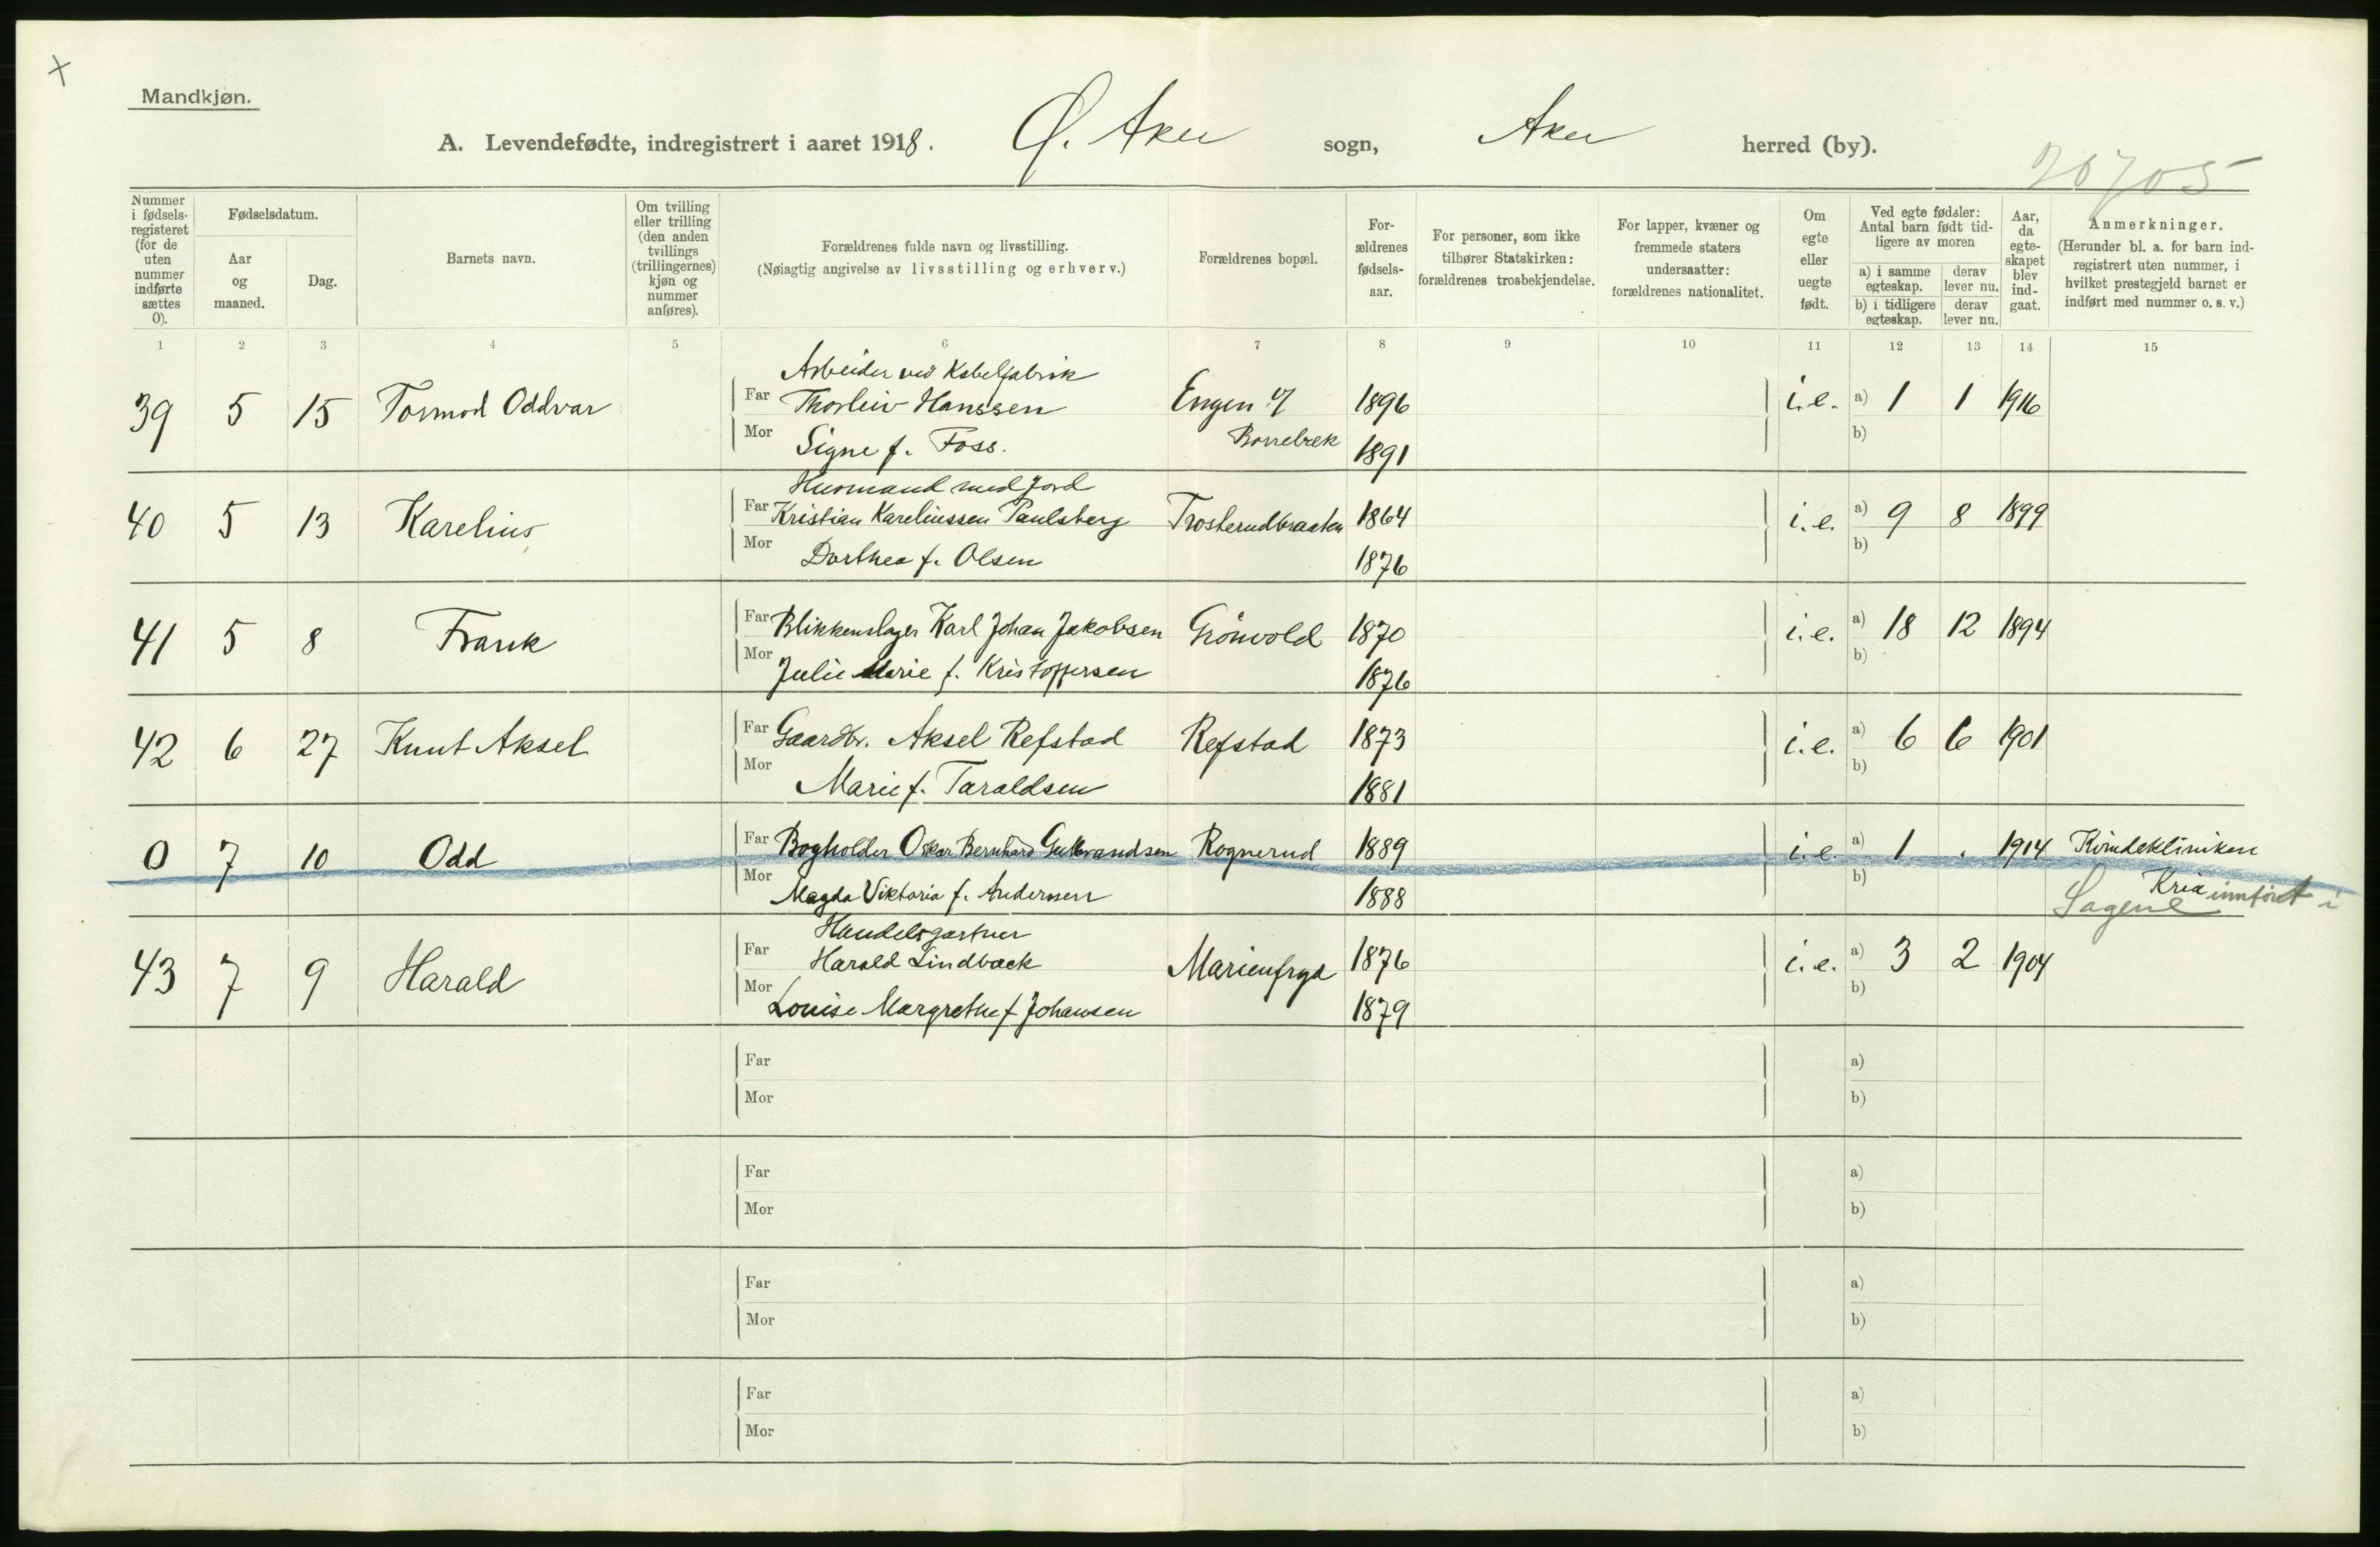 Mandkjøn.
A. Levendefødte, indregistrert i aaret 1918. Ø. Aker sogn, Aker herred (by).
20705
Nummer i fødsels-registeret (for de uten nummer indførte sættes 0).
Fødselsdatum.
Aar og maaned.
Dag.
Barnets navn.
Om tvilling eller trilling (den anden tvillings (trillingernes) kjøn og nummer anføres).
Forældrenes fulde navn og livsstilling.
(Nøiagtig angivelse av livsstilling og erhverv.)
Forældrenes bopæl.
For-ældrenes fødsels-aar.
For personer, som ikke tilhører Statskirken: forældrenes trosbekjendelse.
For lapper, kvæner og fremmede staters undersaatter: forældrenes nationalitet.
Om egte eller uegte født.
Ved egte fødsler: Antal barn født tid-ligere av moren
a) i samme egteskap. derav lever nu.
b) i tidligere egteskap. derav lever nu.
Aar, da egte-skapet blev ind-gaat.
Anmerkninger.
(Herunder bl. a. for barn ind-registrert uten nummer, i hvilket prestegjeld barnet er indført med nummer o. s. v.)
1 2 3 4 5 6 7 8 9 10 11 12 13 14 15
Arbeider ved Kabelfabrik
39 5 15 Tormod Oddvar Far Thorleiv Hanssen Engen 1896 i.e. a) 1 1 1916
Mor Signe f. Foss. 1891 b)
Husmand med Jord
40 5 13 Karelius Far Kristian Kareliussen Paulsberg Trosterudbraaten 1864 i.e. a) 9 8 1899
Mor Dorthea f. Olsen 1876 b)
41 5 8 Frank Far Blikkenslager Karl Johan Jakobsen Grönvold 1870 i.e. a) 18 12 1894
Mor Julie Marie f. Kristoffersen 1876 b)
42 6 27 Knut Aksel Far Gaardbr. Aksel Refstad Refstad 1873 i.e. a) 6 6 1901
Mor Marie f. Taraldsen 1881 b)
0 7 10 Odd Far Bogholder Oskar Bernhard Gulbrandsen Rognerud 1889 i.e. a) 1 . 1914 Kvindekliniken
Mor Magda Viktoria f. Andersen 1888 b) Kria innfört i
Sagene
Handelsgartner
43 7 9 Harald Far Harald Lindbæck Marienfryd 1876 i.e. a) 3 2 1904
Mor Louise Margrethe f Johansen 1879 b)
Far a)
Mor b)
Far a)
Mor b)
Far a)
Mor b)
Far a)
Mor b)